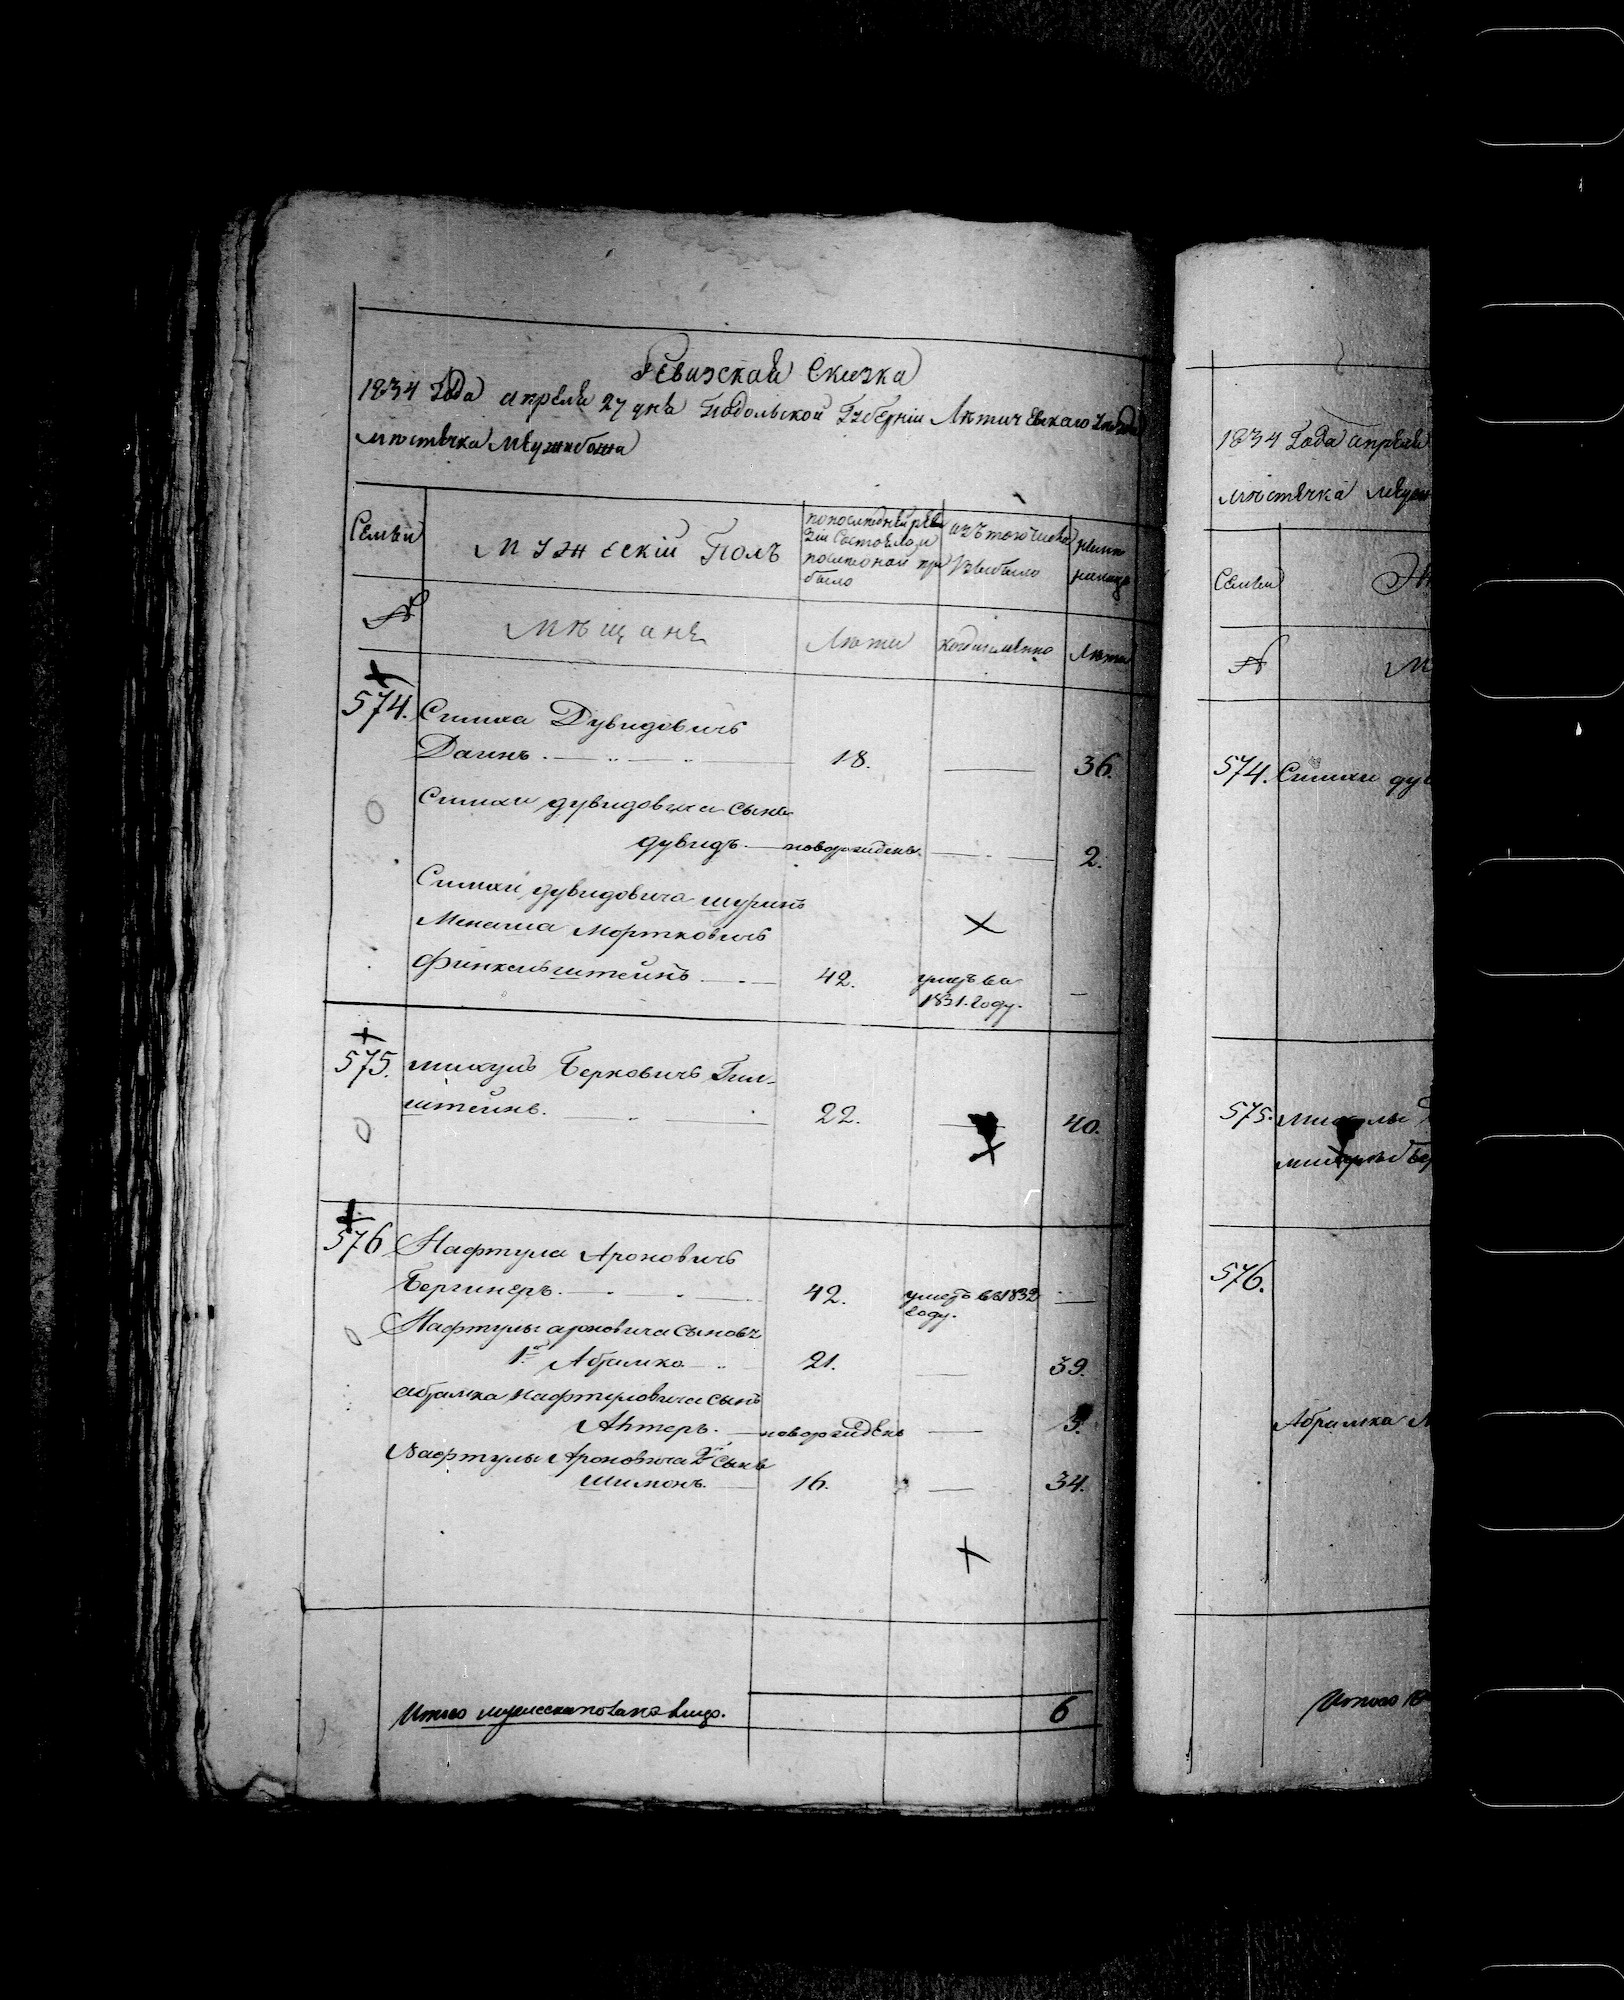 Ревизская Сказка
1834 Года апреля 27 дня Подольской Губерніи Лѣтичевскаго уезда
мѣстечка Меджибожа
Семьи
Мужескій Полъ
по последней ревизіи Состояло и после оной прибыло
изъ того числа выбыло
ныне налицо
№
Мѣщане
Лѣта
когда именно
Лѣта
574. Симха Дувидовичъ
Дагинъ. 18. 36.
Симхи дувидовича сынъ
дувидъ. новорожденъ. 2.
Симхи дувидовича шуринъ
Менаша Мортковичъ
Финкельштейнъ 42. умеръ въ 1831. году.
575. Михуль Берковичъ Гил-
штейнъ. 22. 40.
576 Нафтула Ароновичъ
Бергинеръ. 42. умеръ въ 1832 году.
Нафтулы ароновича сыновъя
1й Абрамко 21. 39.
абрамка нафтуловича сынъ
новорожденъ 3.
Нафтулы Ароновича 2й сынъ
Шимонъ. 16. 34.
Итого мужеска пола на лицо. 6
1834 Года апреля
мѣстечка
Семьи
№
М
574. Симхи
575.
576.
Абрамка
Итого